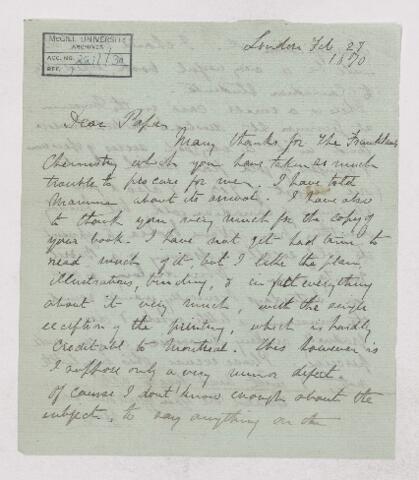 McGILL UNIVERSITY
ARCHIVES
ACC. NO.
REF.
London Feb. 27
1870
Dear Papa
Many thanks for the Frankland's
Chemistry which you have taken so much
trouble to procure for me. I have told
Mamma about its arrival. I have also
to thank you very much for the copy of
your book. I have not yet had time to
read much of it but I like the plan,
illustrations, binding, & in fact everything
about it very much, with the single
exception of the printing, which is hardly
creditable to Montreal. This however is
I suppose only a very minor defect.
Of course I don't know enough about the
subject, to say anything on the